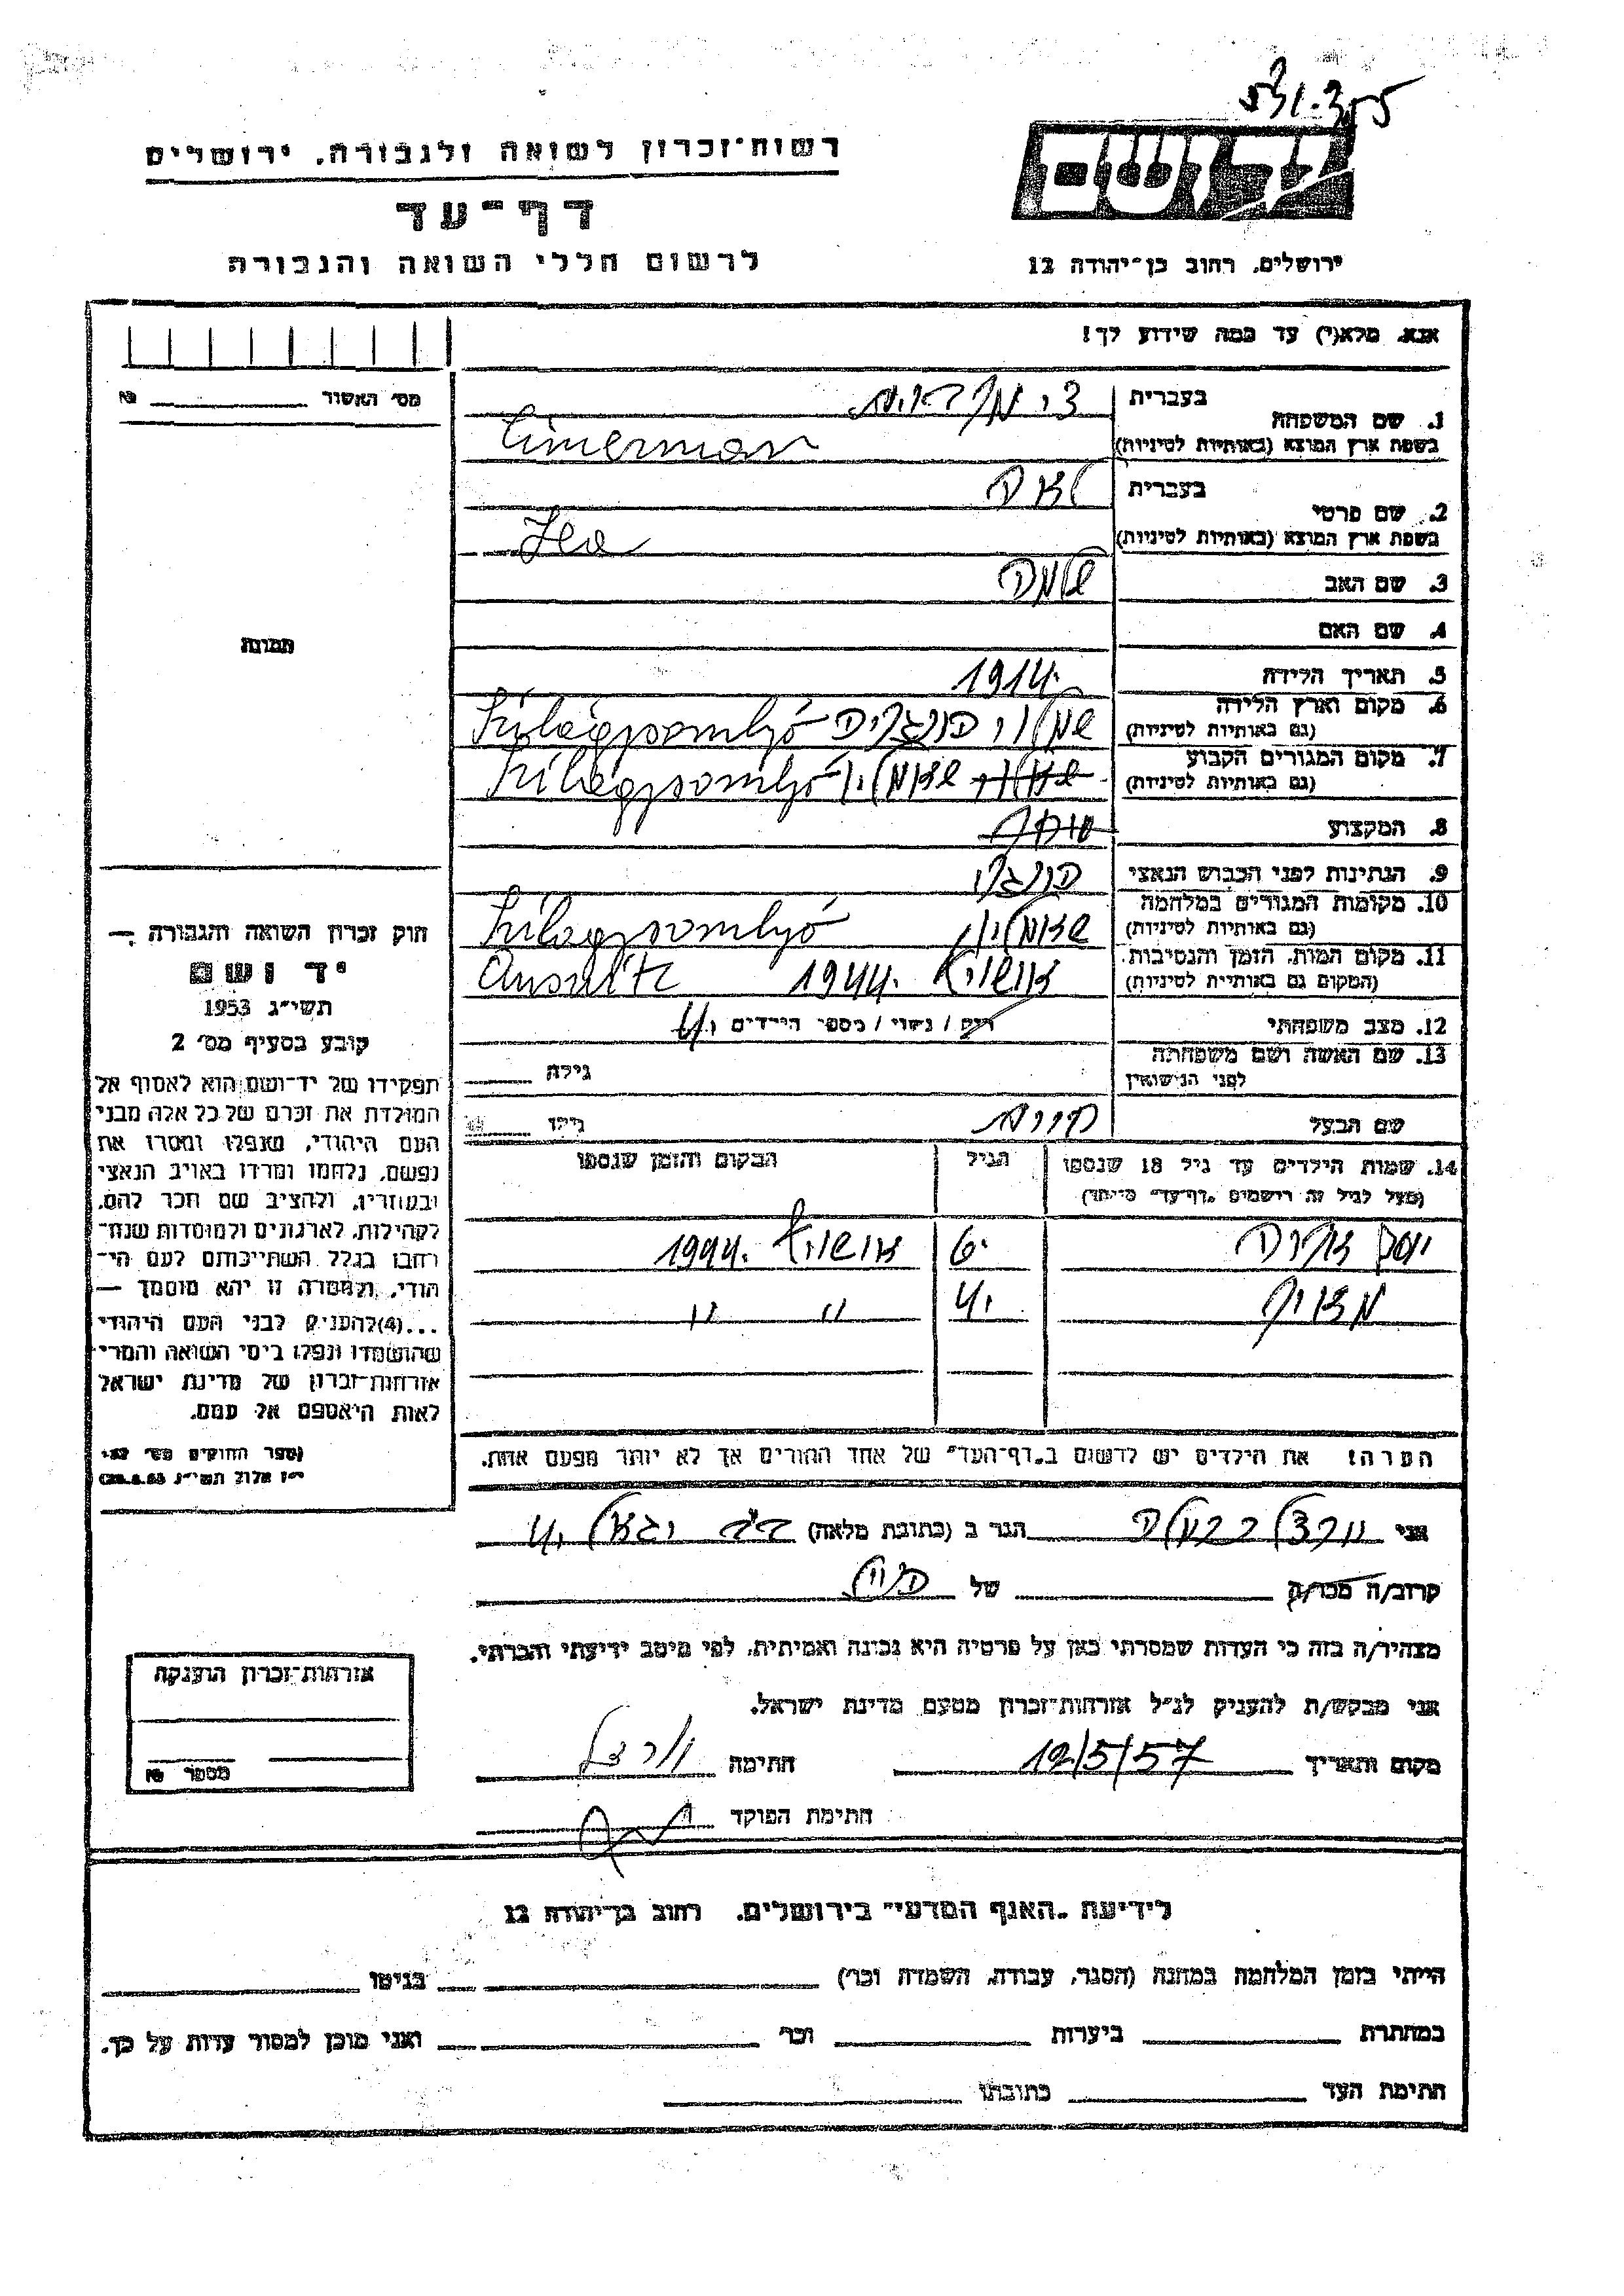 רשות־זכרון לשואה ולגבורה, ירושלים
דף־עד
לרשום חללי השואה והגבורה
ירושלים, רחוב בן־יהודה 12
אנא, מלא(י) עד כמה שידוע לך!
מס' האשור
1. שם המשפחה
בעברית צימרמן
בשפת ארץ המוצא (באותיות לטיניות) Cimerman
2. שם פרטי
בעברית
בשפת ארץ המוצא (באותיות לטיניות)
3. שם האב שלמה
4. שם האם
5. תאריך הלידה 1914.
6. מקום וארץ הלידה
(גם באותיות לטיניות) הונגריה Szilágysomlyó
7. מקום המגורים הקבוע
(גם באותיות לטיניות) Szilágysomlyó
8. המקצוע
9. הנתינות לפני הכבוש הנאצי הונגרי
10. מקומות המגורים במלחמה
(גם באותיות לטיניות) Szilágysomlyó
11. מקום המות, הזמן והנסיבות
(המקום גם באותיות לטיניות) אושויץ 1944.
12. מצב משפחתי רווק / נשוי / מספר הילדים
13. שם האשה ושם משפחתה
לפני הנישואין גילה
שם הבעל גילו
14. שמות הילדים עד גיל 18 שנספו
(מעל לגיל זה רושמים "דף־עד" מיוחד)
הגיל
המקום והזמן שנספו
6. אושויץ 1944.
" "
הערה: את הילדים יש לרשום ב"דף־העד" של אחד ההורים אך לא יותר מפעם אחת.
תמונה
חוק זכרון השואה והגבורה —
יד ושם
תשי"ג 1953
קובע בסעיף מס' 2
תפקידו של יד־ושם הוא לאסוף אל
המולדת את זכרם של כל אלה מבני
העם היהודי, שנפלו ומסרו את
נפשם, נלחמו ומרדו באויב הנאצי
ובעוזריו, ולהציב שם וזכר להם,
לקהילות, לארגונים ולמוסדות שנח־
רבו בגלל השתייכותם לעם הי־
הודי, ולמטרה זו יהא מוסמך —
...(4)להעניק לבני העם היהודי
שהושמדו ונפלו בימי השואה והמרי
אזרחות־זכרון של מדינת ישראל
לאות היאספם אל עמם.
(ספר החוקים מס' 132
י"ז אלול תשי"ג 28.8.53)
אני הגר ב (כתובת מלאה)
קרוב/ה מכר/ה של
מצהיר/ה בזה כי העדות שמסרתי כאן על פרטיה היא נכונה ואמיתית, לפי מיטב ידיעתי והכרתי.
אני מבקש/ת להעניק לנ"ל אזרחות־זכרון מטעם מדינת ישראל.
מקום ותאריך 12/5/57 חתימה
חתימת הפוקד
אזרחות־זכרון הוענקה
מספר
לידיעת "האגף המדעי" בירושלים, רחוב בן־יהודה 12
הייתי בזמן המלחמה במחנה (הסגר, עבודה, השמדה וכו') בגיטו
במחתרת ביערות וכו' ואני מוכן למסור עדות על כך.
חתימת העד כתובתו